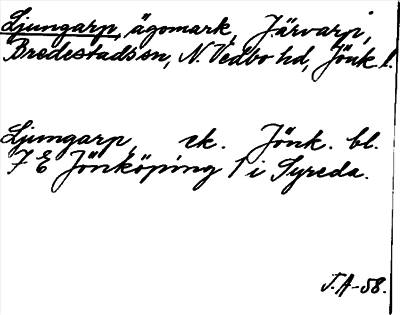 Ljungarp, ägomark, Järvarp,
Bredestads sn, N. Vedbo hd, Jönk. l.
Ljungarp, ek. Jönk. bl.
7 E Jönköping 1 i Syreda.
J. A-58.